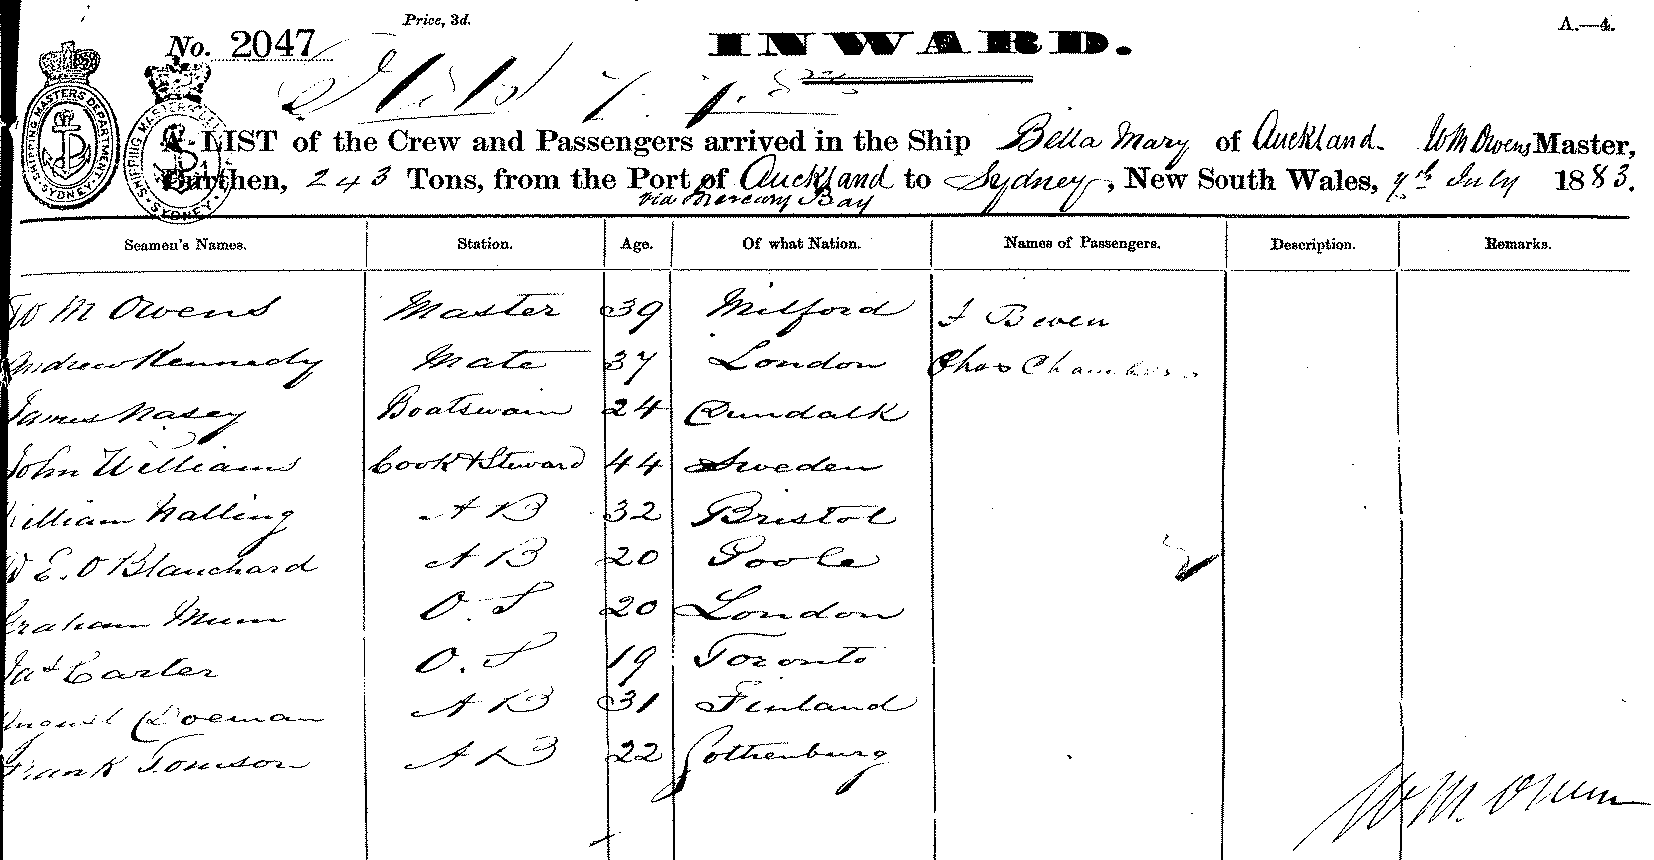 Price, 3d.
A.—4.
No. 2047
INWARD.
SHIPPING MASTERS DEPARTMENT SYDNEY
SHIPPING MASTERS SYDNEY
A LIST of the Crew and Passengers arrived in the Ship Bella Mary of Auckland. W M Owens Master,
Burthen, 243 Tons, from the Port of Auckland to Sydney, New South Wales, 7th July 1883.
via Mercury Bay
Seamen's Names. Station. Age. Of what Nation. Names of Passengers. Description. Remarks.
W M Owens Master 39 Milford J Beven
Andrew Kennedy Mate 37 London Chas Chambers
James Nasey Boatswain 24 Dundalk
John William Cook & Steward 44 Sweden
William Nalling A B 32 Bristol
W E. O Blanchard A B 20 Poole
Graham Mum O. S 20 London
Jas Carter O. S 19 Toronto
August A B 31 Finland
Frank Tomson A B 22 Gothenburg
W M. Owens